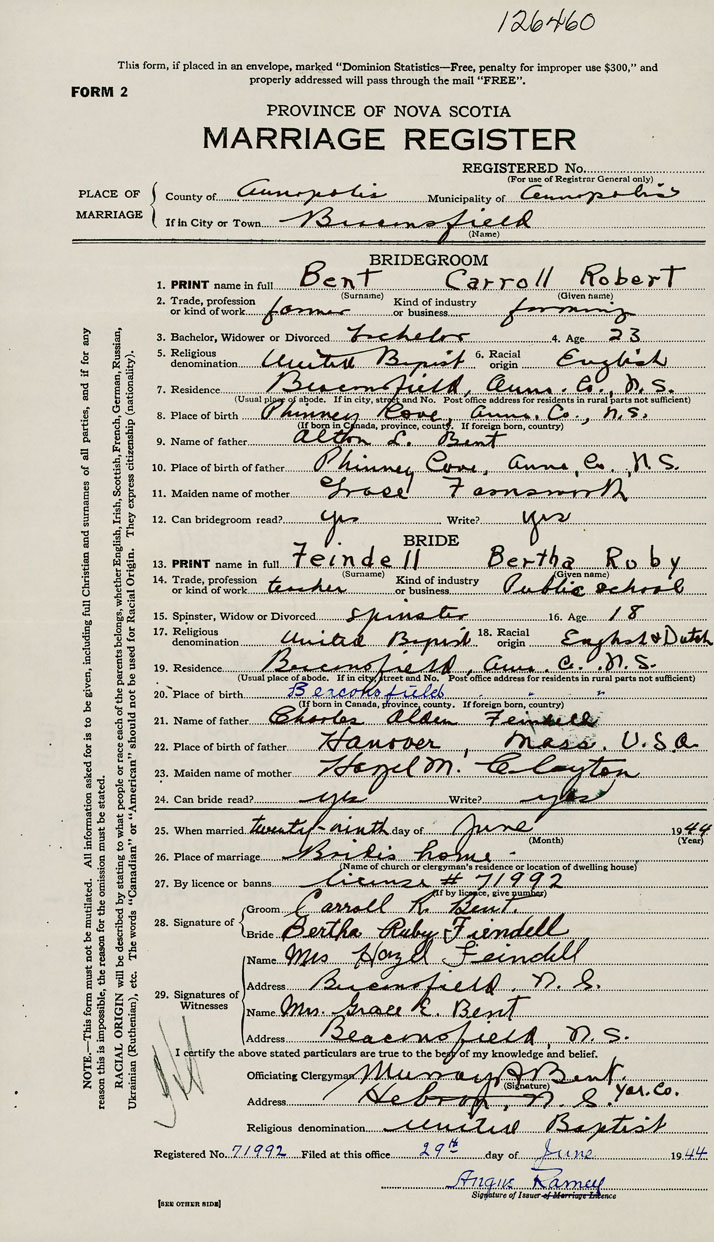 126460
This form, if placed in an envelope, marked "Dominion Statistics—Free, penalty for improper use $300," and
properly addressed will pass through the mail "FREE".
FORM 2
PROVINCE OF NOVA SCOTIA
MARRIAGE REGISTER
REGISTERED No.
(For use of Registrar General only)
PLACE OF MARRIAGE
County of Annapolis Municipality of Annapolis
If in City or Town Beaconsfield
(Name)
BRIDEGROOM
1. PRINT name in full Bent Carroll Robert
(Surname) (Given name)
2. Trade, profession or kind of work farmer Kind of industry or business farming
3. Bachelor, Widower or Divorced bachelor 4. Age 23
5. Religious denomination United Baptist 6. Racial origin English
7. Residence Beaconsfield, Anna. Co., N.S.
(Usual place of abode. If in city, street and No. Post office address for residents in rural parts not sufficient)
8. Place of birth Phinney Cove, Anna. Co., N.S.
(If born in Canada, province, county. If foreign born, country)
9. Name of father Alton L. Bent
10. Place of birth of father Phinney Cove, Anna. Co., N.S.
11. Maiden name of mother Grace Farnsworth
12. Can bridegroom read? yes Write? yes
BRIDE
13. PRINT name in full Feindell Bertha Ruby
(Surname) (Given name)
14. Trade, profession or kind of work teacher Kind of industry or business Public school
15. Spinster, Widow or Divorced spinster 16. Age 18
17. Religious denomination United Baptist 18. Racial origin English & Dutch
19. Residence Beaconsfield, Anna. Co. N.S.
(Usual place of abode. If in city, street and No. Post office address for residents in rural parts not sufficient)
20. Place of birth Beaconsfield " " "
(If born in Canada, province, county. If foreign born, country)
21. Name of father Charles Alden Feindell
22. Place of birth of father Hanover, Mass. U.S.A
23. Maiden name of mother Hazel M. Clayton
24. Can bride read? yes Write? yes
25. When married twenty-ninth day of June 1944
(Month) (Year)
26. Place of marriage Bride's home
(Name of church or clergyman's residence or location of dwelling house)
27. By licence or banns license # 71992
(If by licence, give number)
28. Signature of
Groom Carroll R. Bent.
Bride Bertha Ruby Fiendell
29. Signatures of Witnesses
Name Mrs Hazel Feindell
Address Beaconsfield, N.S.
Name Mrs. Grace E. Bent
Address Beaconsfield, N.S.
I certify the above stated particulars are true to the best of my knowledge and belief.
Officiating Clergyman Murray A Bent.
(Signature)
Address Hebron, N.S. Yar. Co.
Religious denomination United Baptist
Registered No. 71992 Filed at this office 29th day of June 1944
Angus Ramey
Signature of Issuer of Marriage Licence
[SEE OTHER SIDE]
NOTE.—This form must not be mutilated. All information asked for is to be given, including full Christian and surnames of all parties, and if for any
reason this is impossible, the reason for the omission must be stated.
RACIAL ORIGIN will be described by stating to what people or race each of the parents belongs, whether English, Irish, Scottish, French, German, Russian,
Ukrainian (Ruthenian), etc. The words "Canadian" or "American" should not be used for Racial Origin. They express citizenship (nationality).